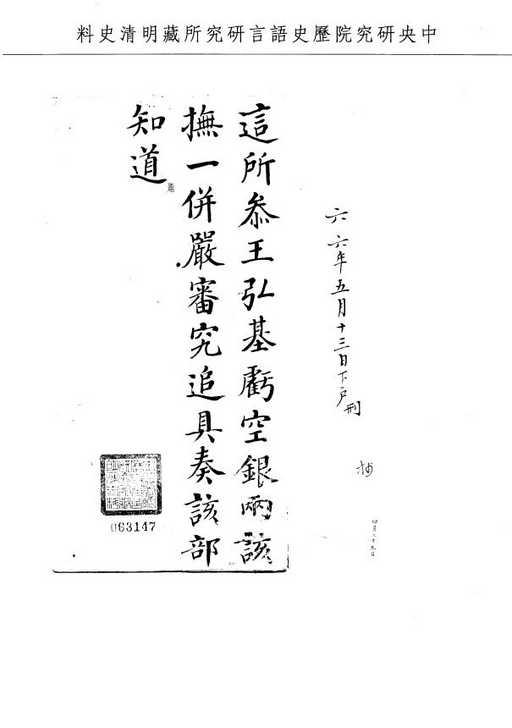 中央研究院歷史語言研究所藏明清史料
六 六年五月十三日下戶刑
抄
四月二十九日
這所叅王弘基虧空銀兩該
撫一併嚴審究追具奏該部
知道
063147